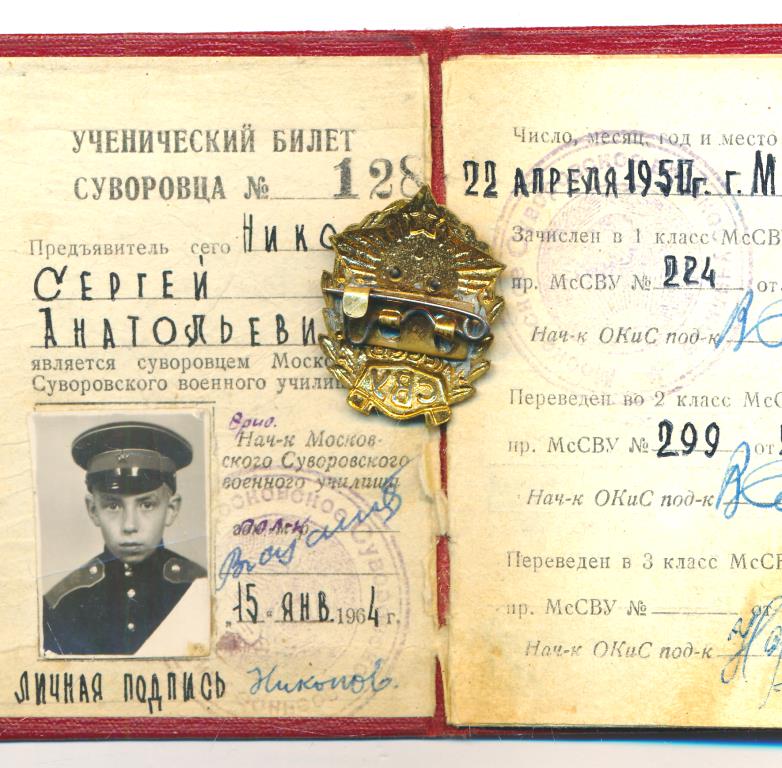 УЧЕНИЧЕСКИЙ БИЛЕТ
СУВОРОВЦА № 128
Предъявитель сего Нико
СЕРГЕЙ
АНАТОЛЬЕВИ
является суворовцем Моско
Суворовского военного училищ
Врио.
Нач-к Москов-
ского Суворовского
военного училища
„15“ ЯНВ. 1964 г.
ЛИЧНАЯ ПОДПИСЬ Никонов.
Число, месяц, год и место
22 АПРЕЛЯ 1950г. г. М
Зачислен в 1 класс МсСВ
пр. МсСВУ № 224 от
Нач-к ОКиС под-к
Переведен во 2 класс МсС
пр. МсСВУ № 299 от
Нач-к ОКиС под-к
Переведен в 3 класс МсСВ
пр. МсСВУ № от
Нач-к ОКиС под-к
СССР
СВУ